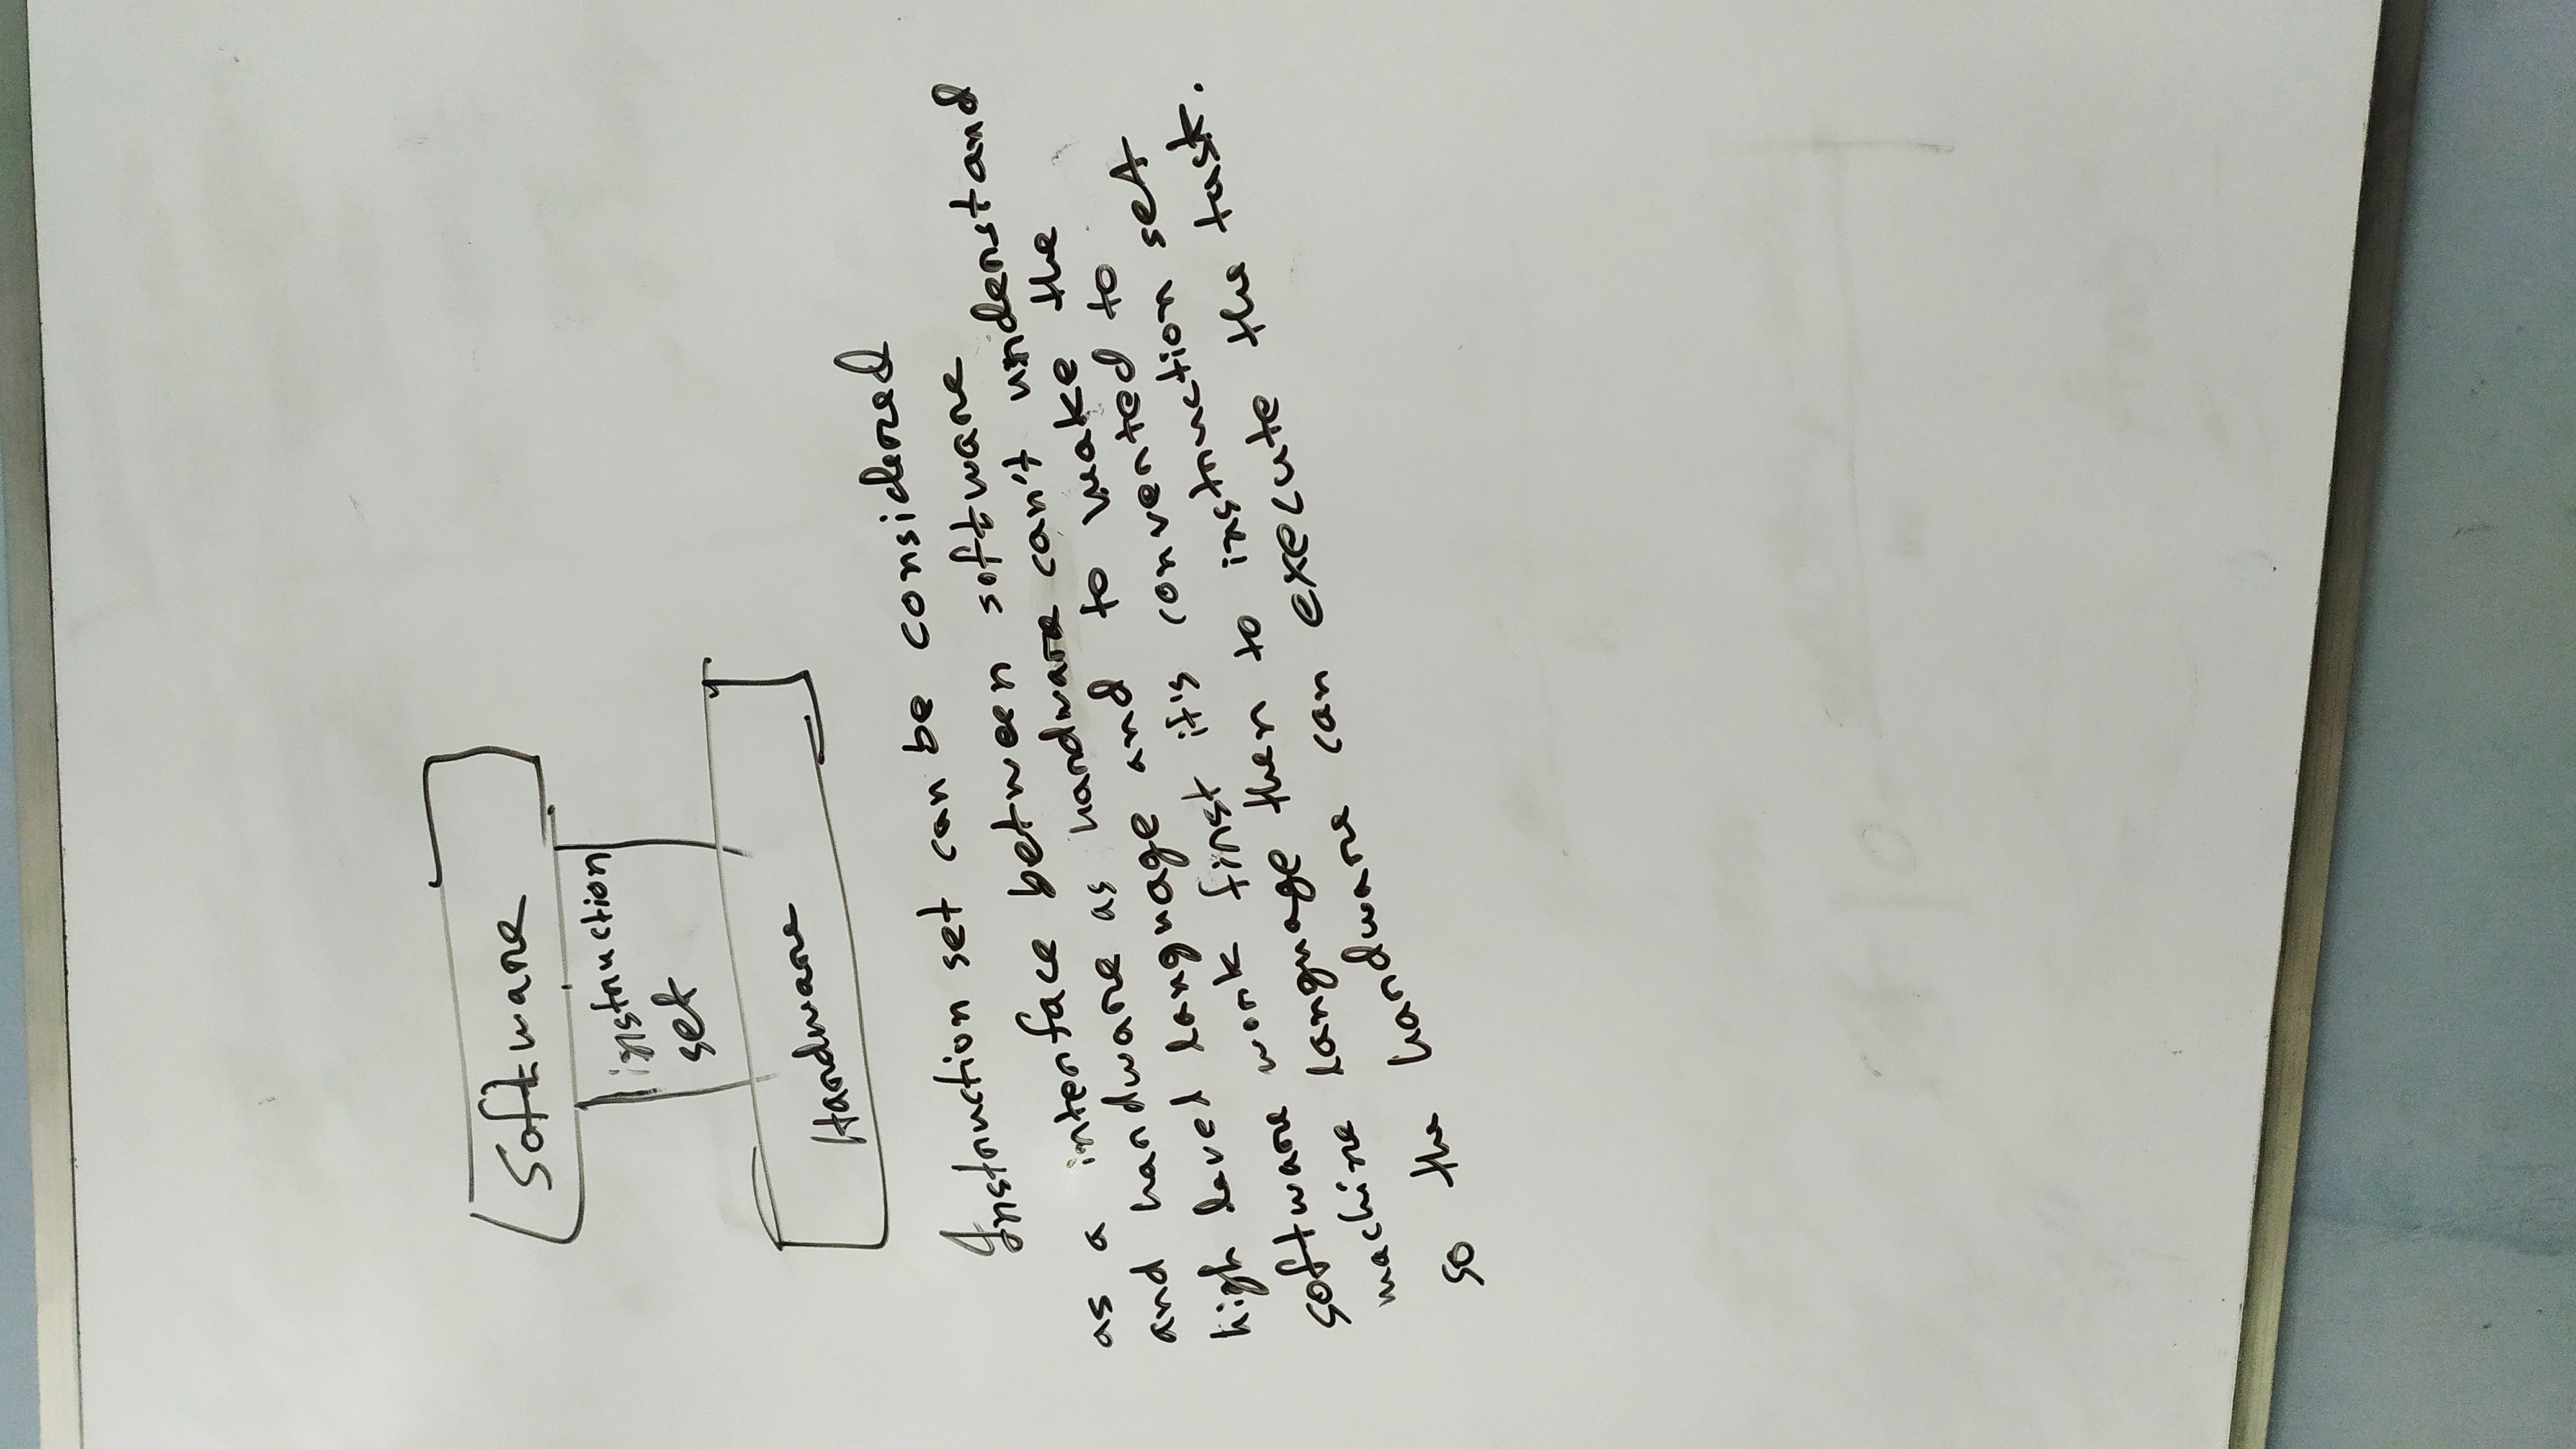 Software
instruction
set
Hardware
Instruction set can be considered
as a interface between software
and hardware as hardware can't understand
high level language and to make the
software work first it's converted to
machine language then to instruction set
so the hardware can execute the task.